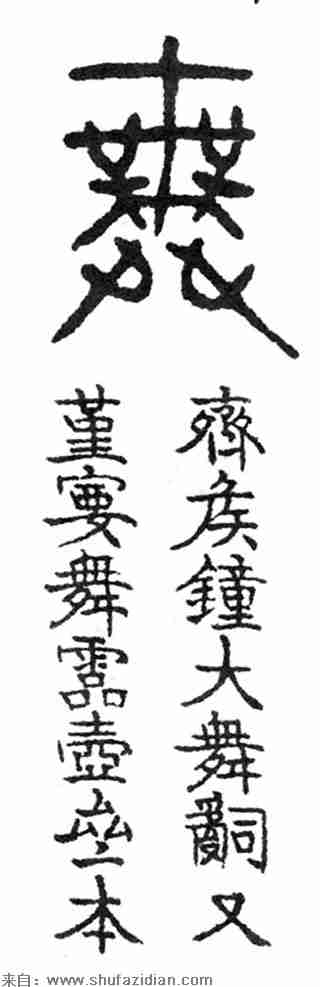 舞
齊矦鐘大舞𤔲又
堇舞霝壺本
来自：www.shufazidian.com